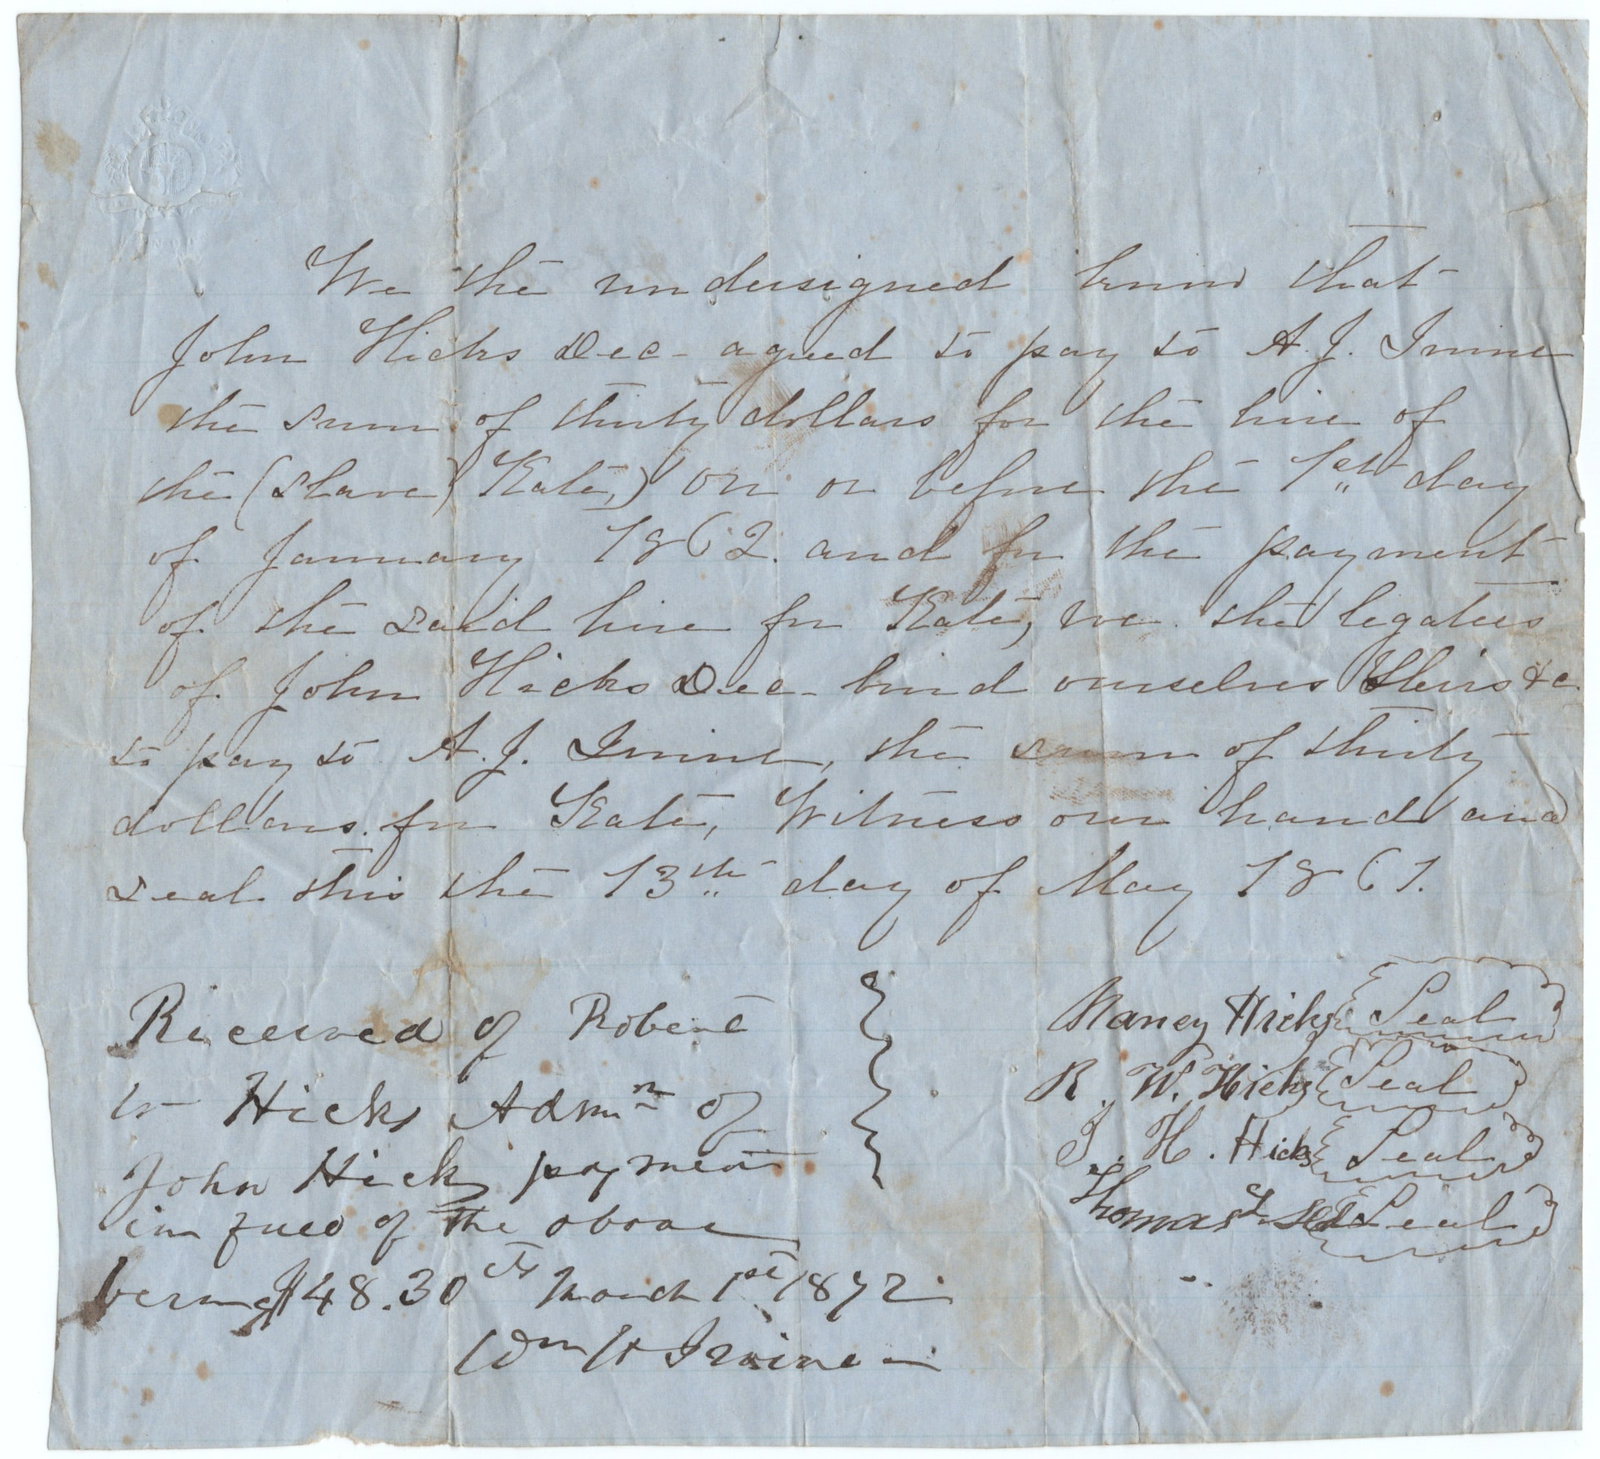 We the undersigned know that
John Hicks Dec- agreed to pay to A. J. Irvine
the sum of thirty dollars for the hire of
the (slave) Kate,) on or before the 1st day
of January 1862. and for the payment
of the said hire for Kate, we the legatees
of John Hicks Dec- bind ourselves Heirs &c.
to pay to A. J. Irvine, the sum of thirty
dollars. for Kate, Witness our hand and
seal this the 13th day of May 1861.
Nancy Hicks Seal
R. W. Hicks Seal
J. H. Hicks Seal
Thomas Seal
Received of Robert
W Hicks Admn of
John Hicks payment
in full of the above
being $48.30 cts March 1st 1872
Wm H Irvine